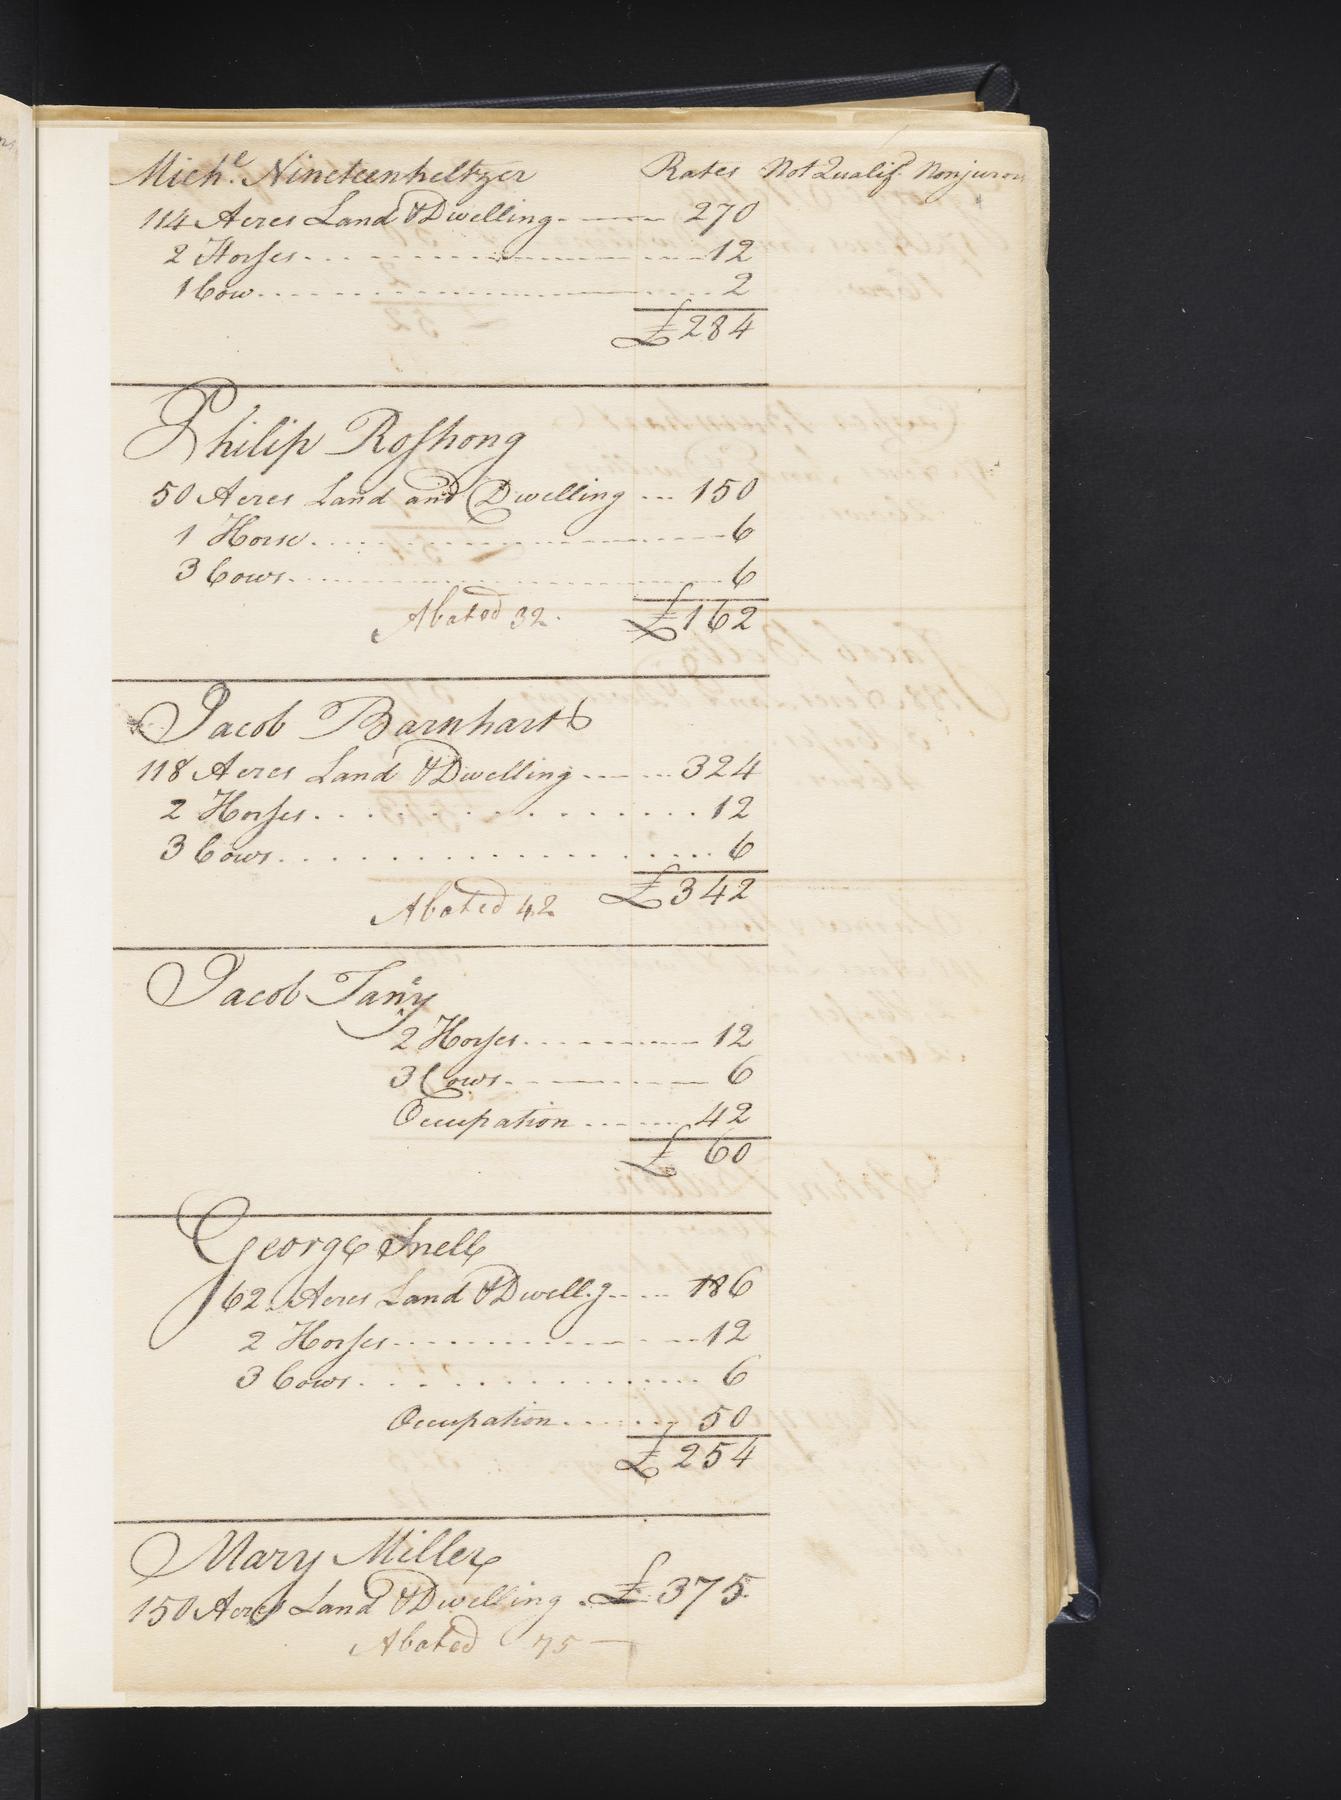 Mich.l Nineteenheltzer Rates Not Qualif.d Nonjurors
114 Acres Land & Dwelling 270
2 Horses 12
1 Cow 2
£284
Philip Roshong
50 Acres Land and Dwelling 150
1 Horse 6
3 Cows 6
Abated 32. £162
Jacob Barnhart
118 Acres Land & Dwelling 324
2 Horses 12
3 Cows 6
Abated 42 £342
Jacob Taney
2 Horses 12
3 Cows 6
Occupation 42
£60
George Snell
62 Acres Land & Dwell.g 186
2 Horses 12
3 Cows 6
Occupation 50
£254
Mary Miller
150 Acres Land & Dwelling £375
Abated 75